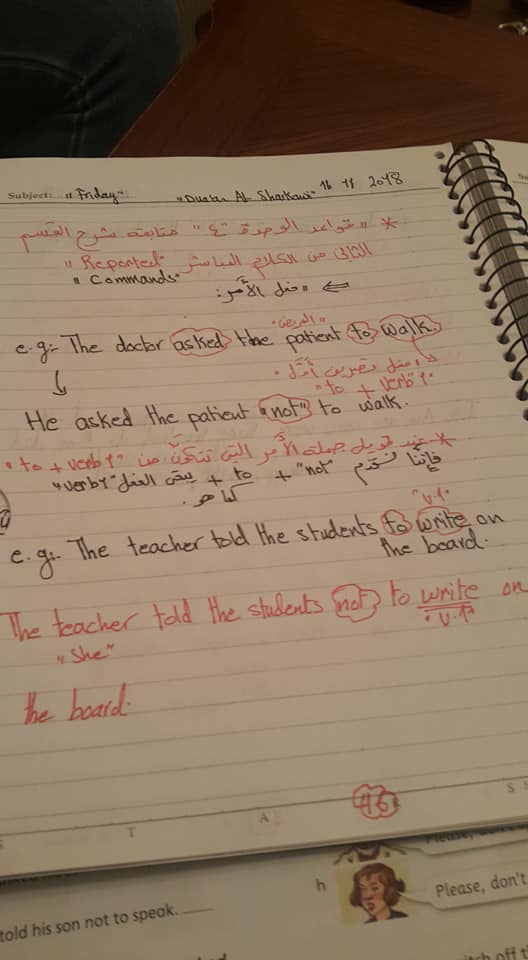 Subject: "Friday" "Duaa Al-Sharkawi" 16 11 2018
* "قواعد الوحدة "٤" متابعة شرح القسم
الثاني من الكلام المباشر "Reported
"Commands"
⇐ "حل الأمر:
"المريض"
e.g:- The doctor asked the patient to walk.
حل تمرين أمل.
"to + verb 1"
↓
He asked the patient "not" to walk.
* عند تحويل جملة الأمر التي تتكون من "to + verb 1"
فإننا نستخدم "not" + to + يبقى الفعل "verb 1"
كما هو.
"v.1"
e.g:- The teacher told the students to write on
the board.
The teacher told the students not to write on
"She" "v.1"
the board.
46
S T A S S
h
Please, don't
told his son not to speak.